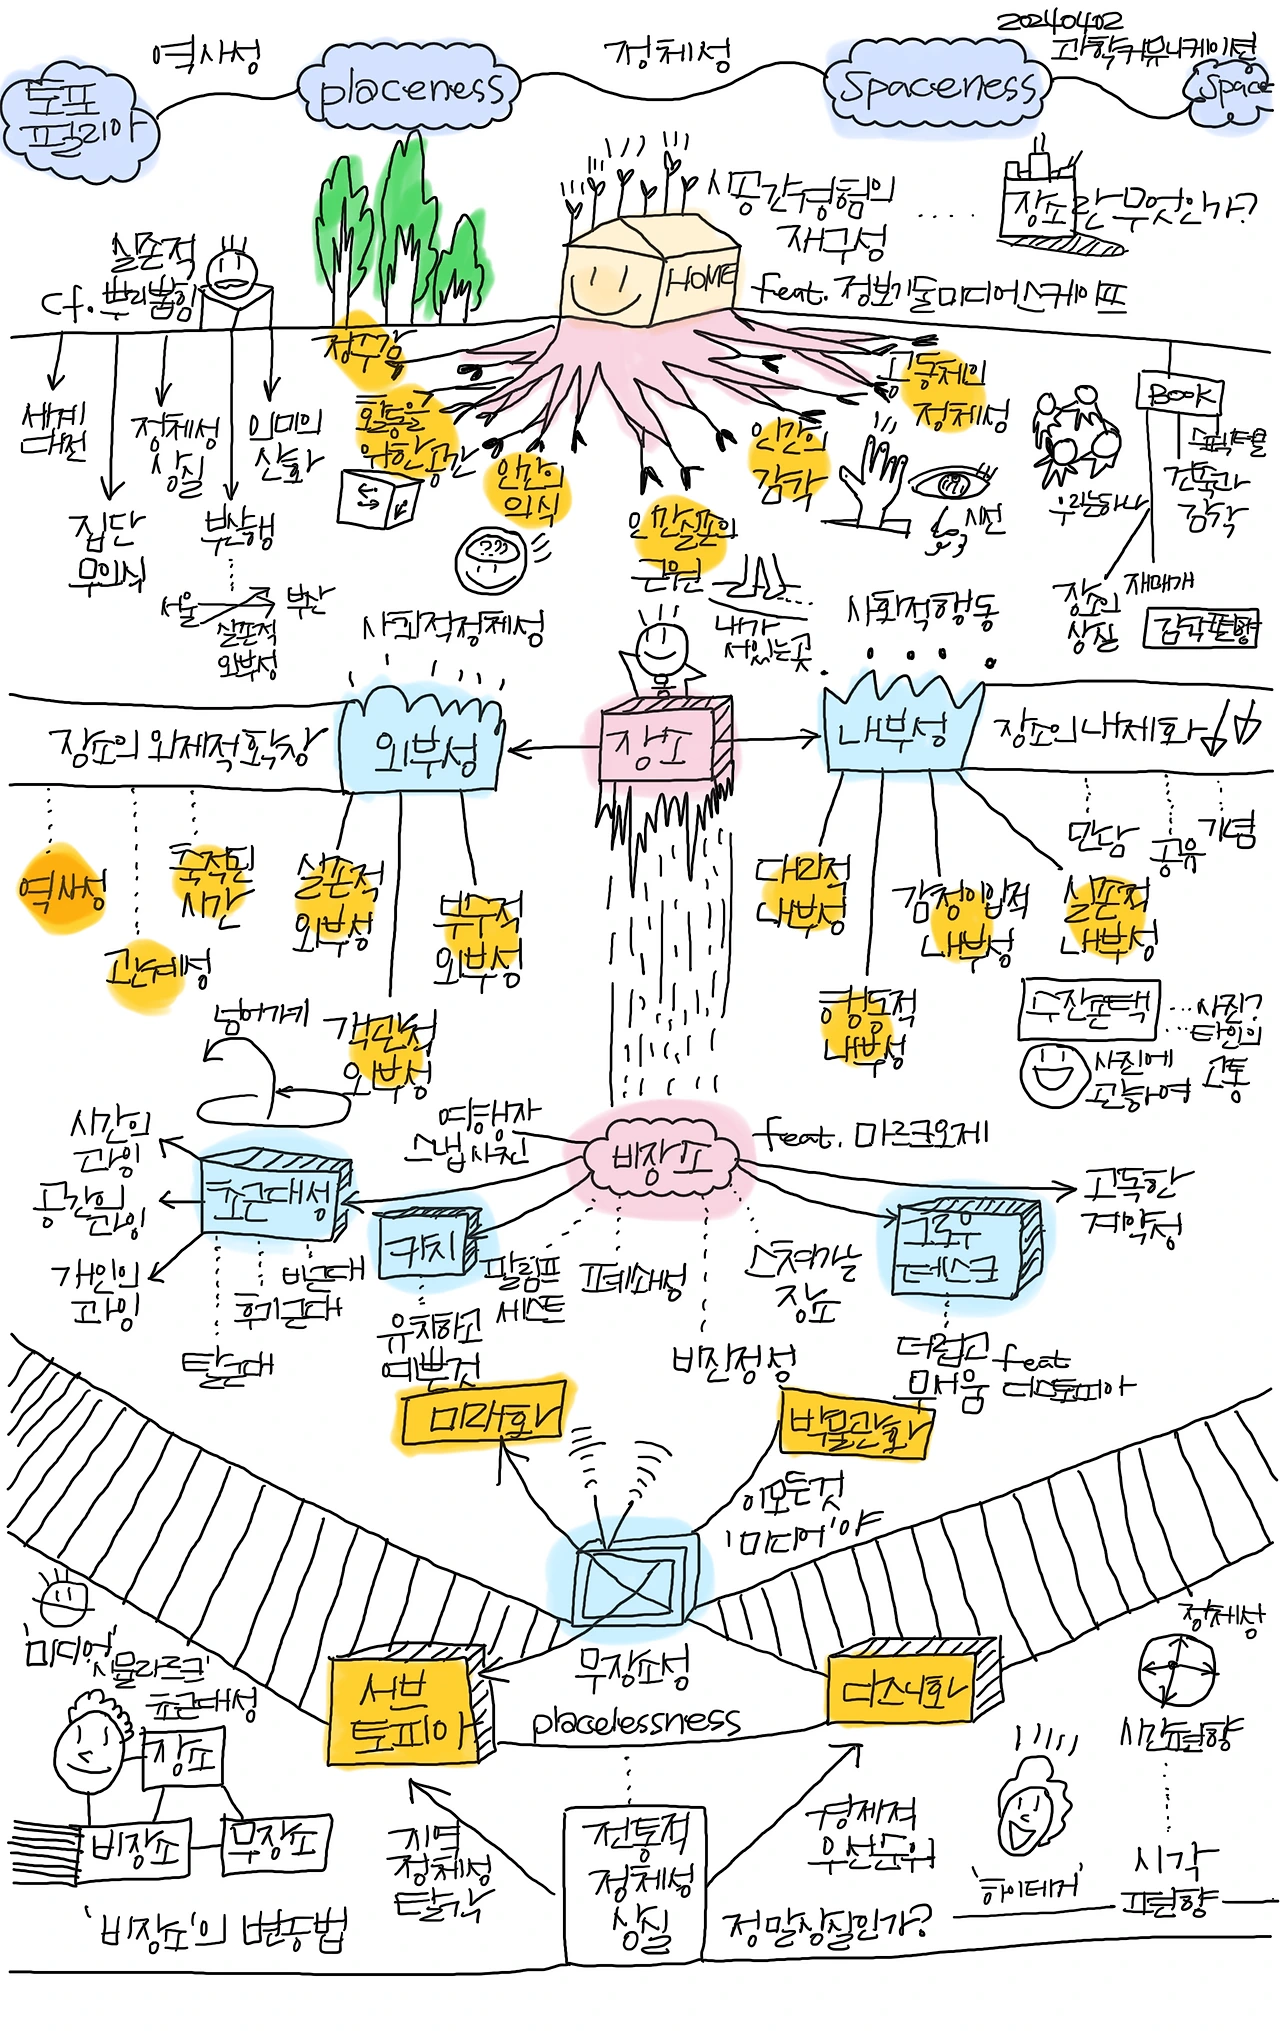 20240402
과학커뮤니케이션
토포
필리아
역사성
placeness
정체성
Spaceness
Space
시공간경험의
재구성
장소란 무엇인가?
feat. 정보기둘미디어스케이프
HOME
실존적
cf. 뿌리뽑힘
세계
대전
집단
무의식
정체성
상실
부산행
서울
부산
실존적
외부성
의미의
산화
정주감
활동을
위한공간
인간의
의식
인간실존의
근원
인간의
감각
공동체의
정체성
시선
내가
서있는곳
우리는하나
BOOK
스펙터클
건축과
감각
장소의
상실
재매개
감각편향
사회적정체성
사회적행동
장소의 외제적확장
외부성
장소
내부성
장소의내제화
역사성
관계성
축적된
시간
실존적
외부성
객관적
외부성
부수적
외부성
대리적
내부성
행동적
내부성
감정이입적
내부성
실존적
내부성
만남
공유
기념
수잔손택
사진?
타인의
고통
사진에
관하여
넘어가기
시간의
과잉
공간의
과잉
개인의
과잉
초근대성
탈근대
후기근대
비근대
여행자
스냅사진
비장소
feat. 마르크오제
키치
유치하고
예쁜것
팔림프
세스트
폐쇄성
비진정성
스쳐가는
장소
그로우
테스크
더럽고
무서움
feat
디스토피아
고독한
계약성
미래화
박물관화
이모든것
'미디어'야
'미디어'
시뮬라르크
초근대성
장소
비장소
무장소
'비장소'의 변증법
서브
토피아
무장소성
placelessness
디즈니화
지역
정체성
탈각
전통적
정체성
상실
경제적
우선순위
정말상실인가?
'하이데거'
정체성
시각
편향